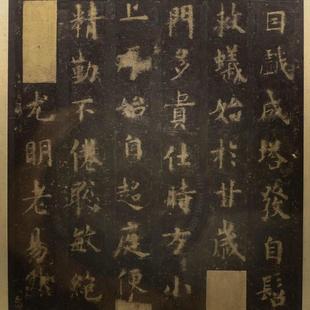 因戲成塔發自髫
救蟻始於廿歲
門多貴仕時方小
上始自超庭便
精勤不倦聰敏絶
尤明老易